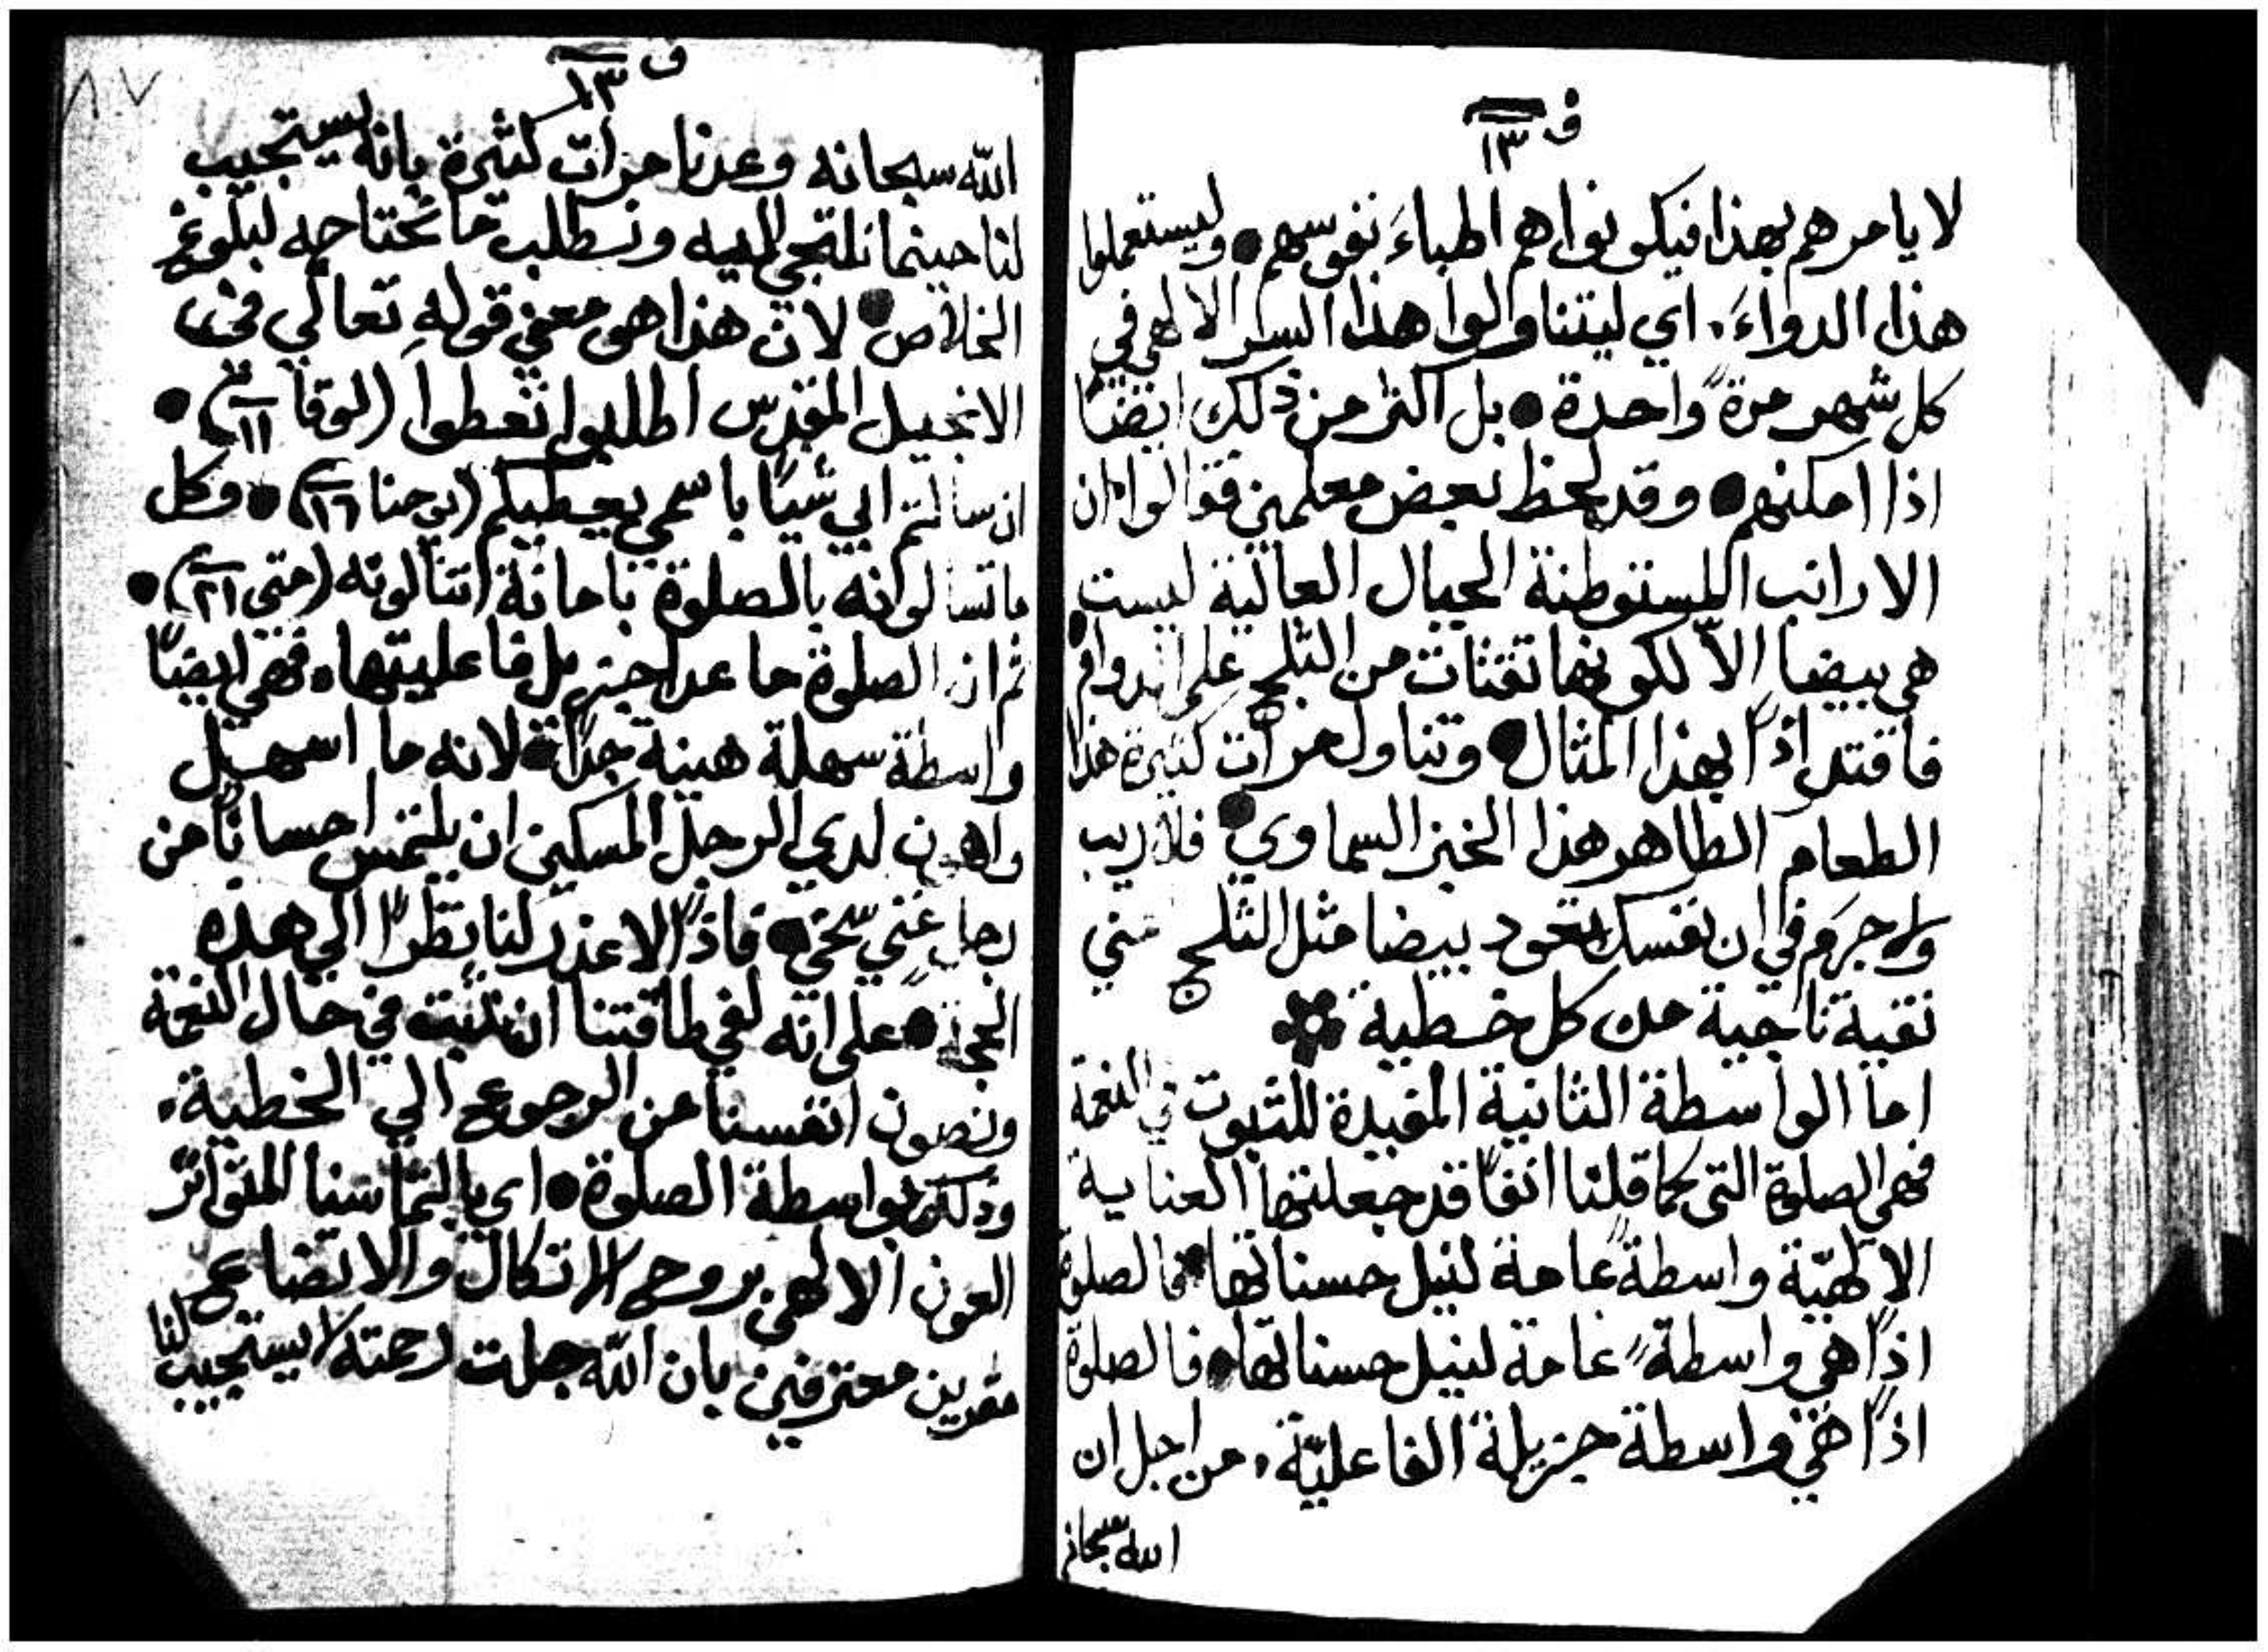 ف ١٣
لا يامرهم بهذا فيكونوا هم اطباءَ نفوسهم • وليستعملوا
هذا الدواءَ. اي ليتناولوا هذا السر الالهي في
كل شهر مرةً واحدة • بل اكثر من ذلك ايضًا
اذا امكنهم • وقد لحظ بعض معلمين فقالوا ان
الارانب المستوطنة الجبال العالية ليست
هي بيضا الاّ لكونها تقتات من الثلج على الدوام •
فاقتد اذًا بهذا المثال • وتناول مرات كثيرة هذا
الطعام الطاهر هذا الخبز السماوي • فلا ريب
ولا جرم في ان نفسك تعود بيضا مثل الثلج
نقية ناجية من كل خطية
اما الواسطة الثانية المفيدة للثبوت في النعمة
فهي الصلوة التي كما قلنا انفًا قد جعلتها العناية
الالهيّة واسطةً عامة لنيل حسناتها • فالصلوة
اذًا هي واسطةً عامة لنيل حسناتها • فالصلوة
اذًا هي واسطة جزيلة الفاعليّة. من اجل ان
الله سبحانه
٨٧
ف ١٣
الله سبحانه وعدنا مرات كثيرة بانه يستجيب
لنا حينما نلتجي اليه ونطلب ما نحتاجه لبلوغ
الخلاص • لان هذا هو معنى قولهِ تعالي في
الانجيل المقدس اطلبوا تعطوا (لوقا ١١) •
ان سالتم ابي شيًا باسمي يعطيكم (يوحنا ١٦) • وكل
ما تسالونه بالصلوة بامانة تنالونه (متى ٢١) •
ثم ان الصلوة ما عدا جزيل فاعليتها. فهي ايضًا
واسطة سهلة هينة جدًا • لانه ما اسهل
واهون لدي الرجل المسكين ان يلتمس احسانًا من
رجل غني سخي • فاذًا لا عذر لنا نظرًا الي هذه
الحجة • على انه لفي طاقتنا ان نثبت في حال النعمة
ونصون انفسنا من الرجوع الي الخطية.
وذلك بواسطة الصلوة • اي بالتماسنا المتواتر
العون الالهي بروح الاتكال والاتضاع
مقرين معترفين بان الله جلت رحمته لا يستجيب لنا